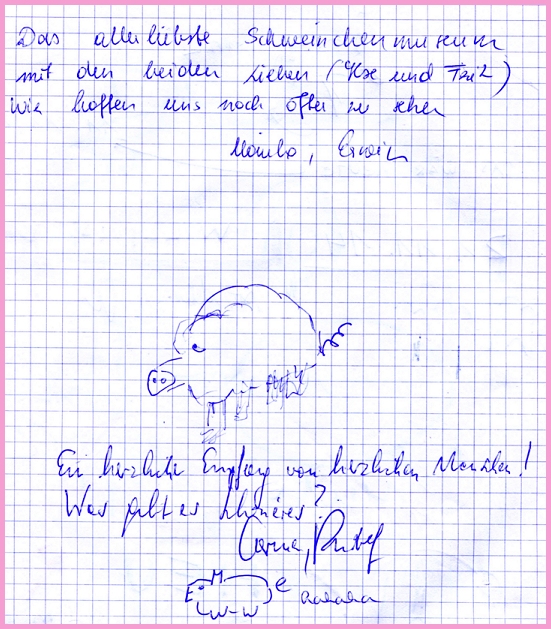 Das allerliebste Schweinchenmuseum
mit den beiden Lieben ( und Fritz)
Wir hoffen uns noch öfter zu sehen
Erwin
Ein herzlicher Empfang von herzlichen Menschen!
Was gibt es schöneres?